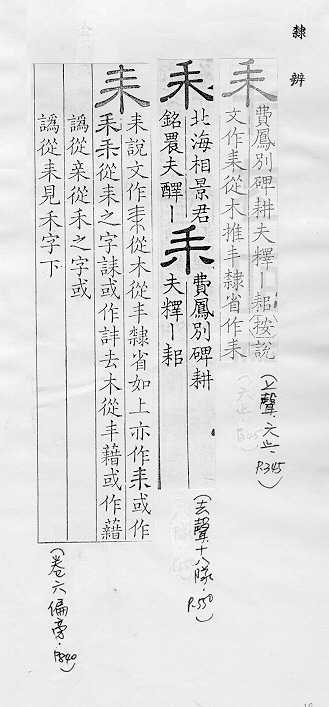 隸辨
耒 費鳳別碑耕夫釋丨耜按說
文作耒從木推丰隸省作耒
(上聲六止. P.345)
耒 北海相景君
銘農夫醳丨 耒 費鳳別碑耕
夫釋丨耜
(去聲十八隊. P.550)
耒 耒說文作耒從木從丰隸省如上亦作耒或作
耒耒從耒之字誄或作詳去木從丰藉或作藉
譌從亲從禾之字或
譌從耒見禾字下
(卷六偏旁. P.840)